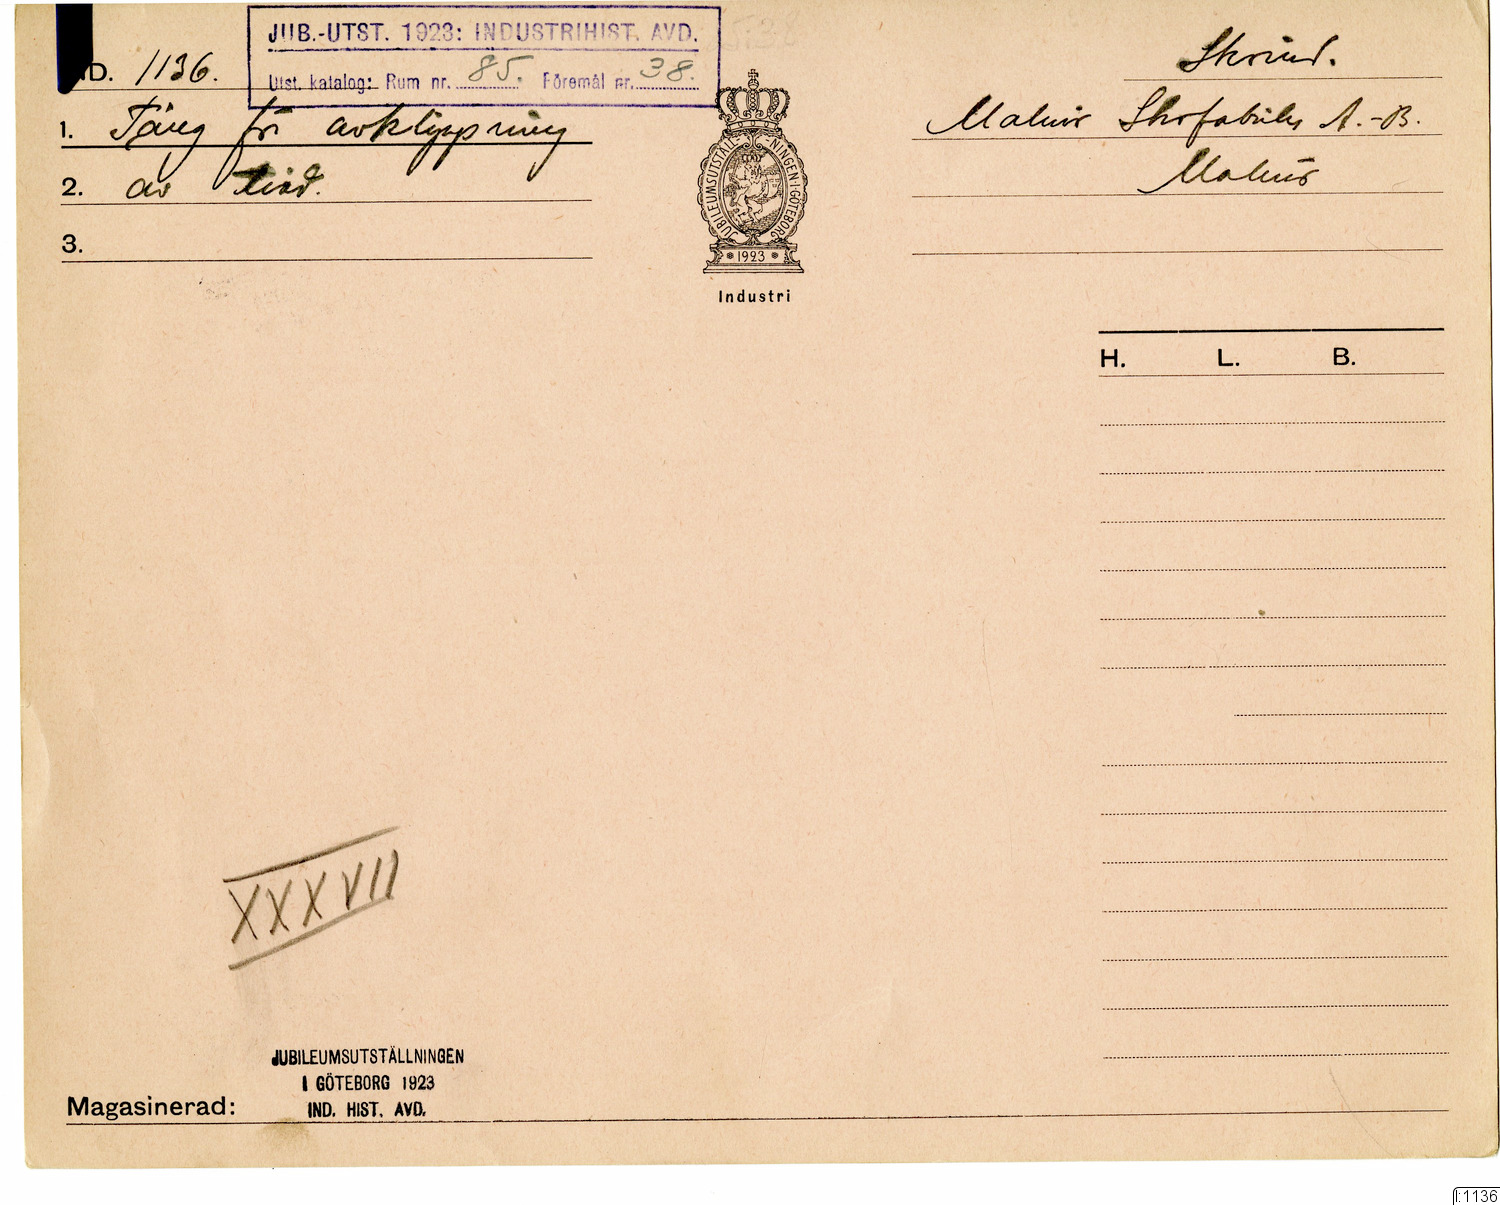 JUB.-UTST. 1923: INDUSTRIHIST. AVD.
Utst. katalog: Rum nr. 85. Föremål nr. 38.
ND. 1136.
1. Tång för avklippning
2. av tråd.
3.
JUBILEUMSUTSTÄLLNINGEN I GÖTEBORG
* 1923 *
Industri
Skoind.
Malmö Skofabriks A.-B.
Malmö
H. L. B.
XXXVII
JUBILEUMSUTSTÄLLNINGEN
I GÖTEBORG 1923
IND. HIST. AVD.
Magasinerad:
I:1136